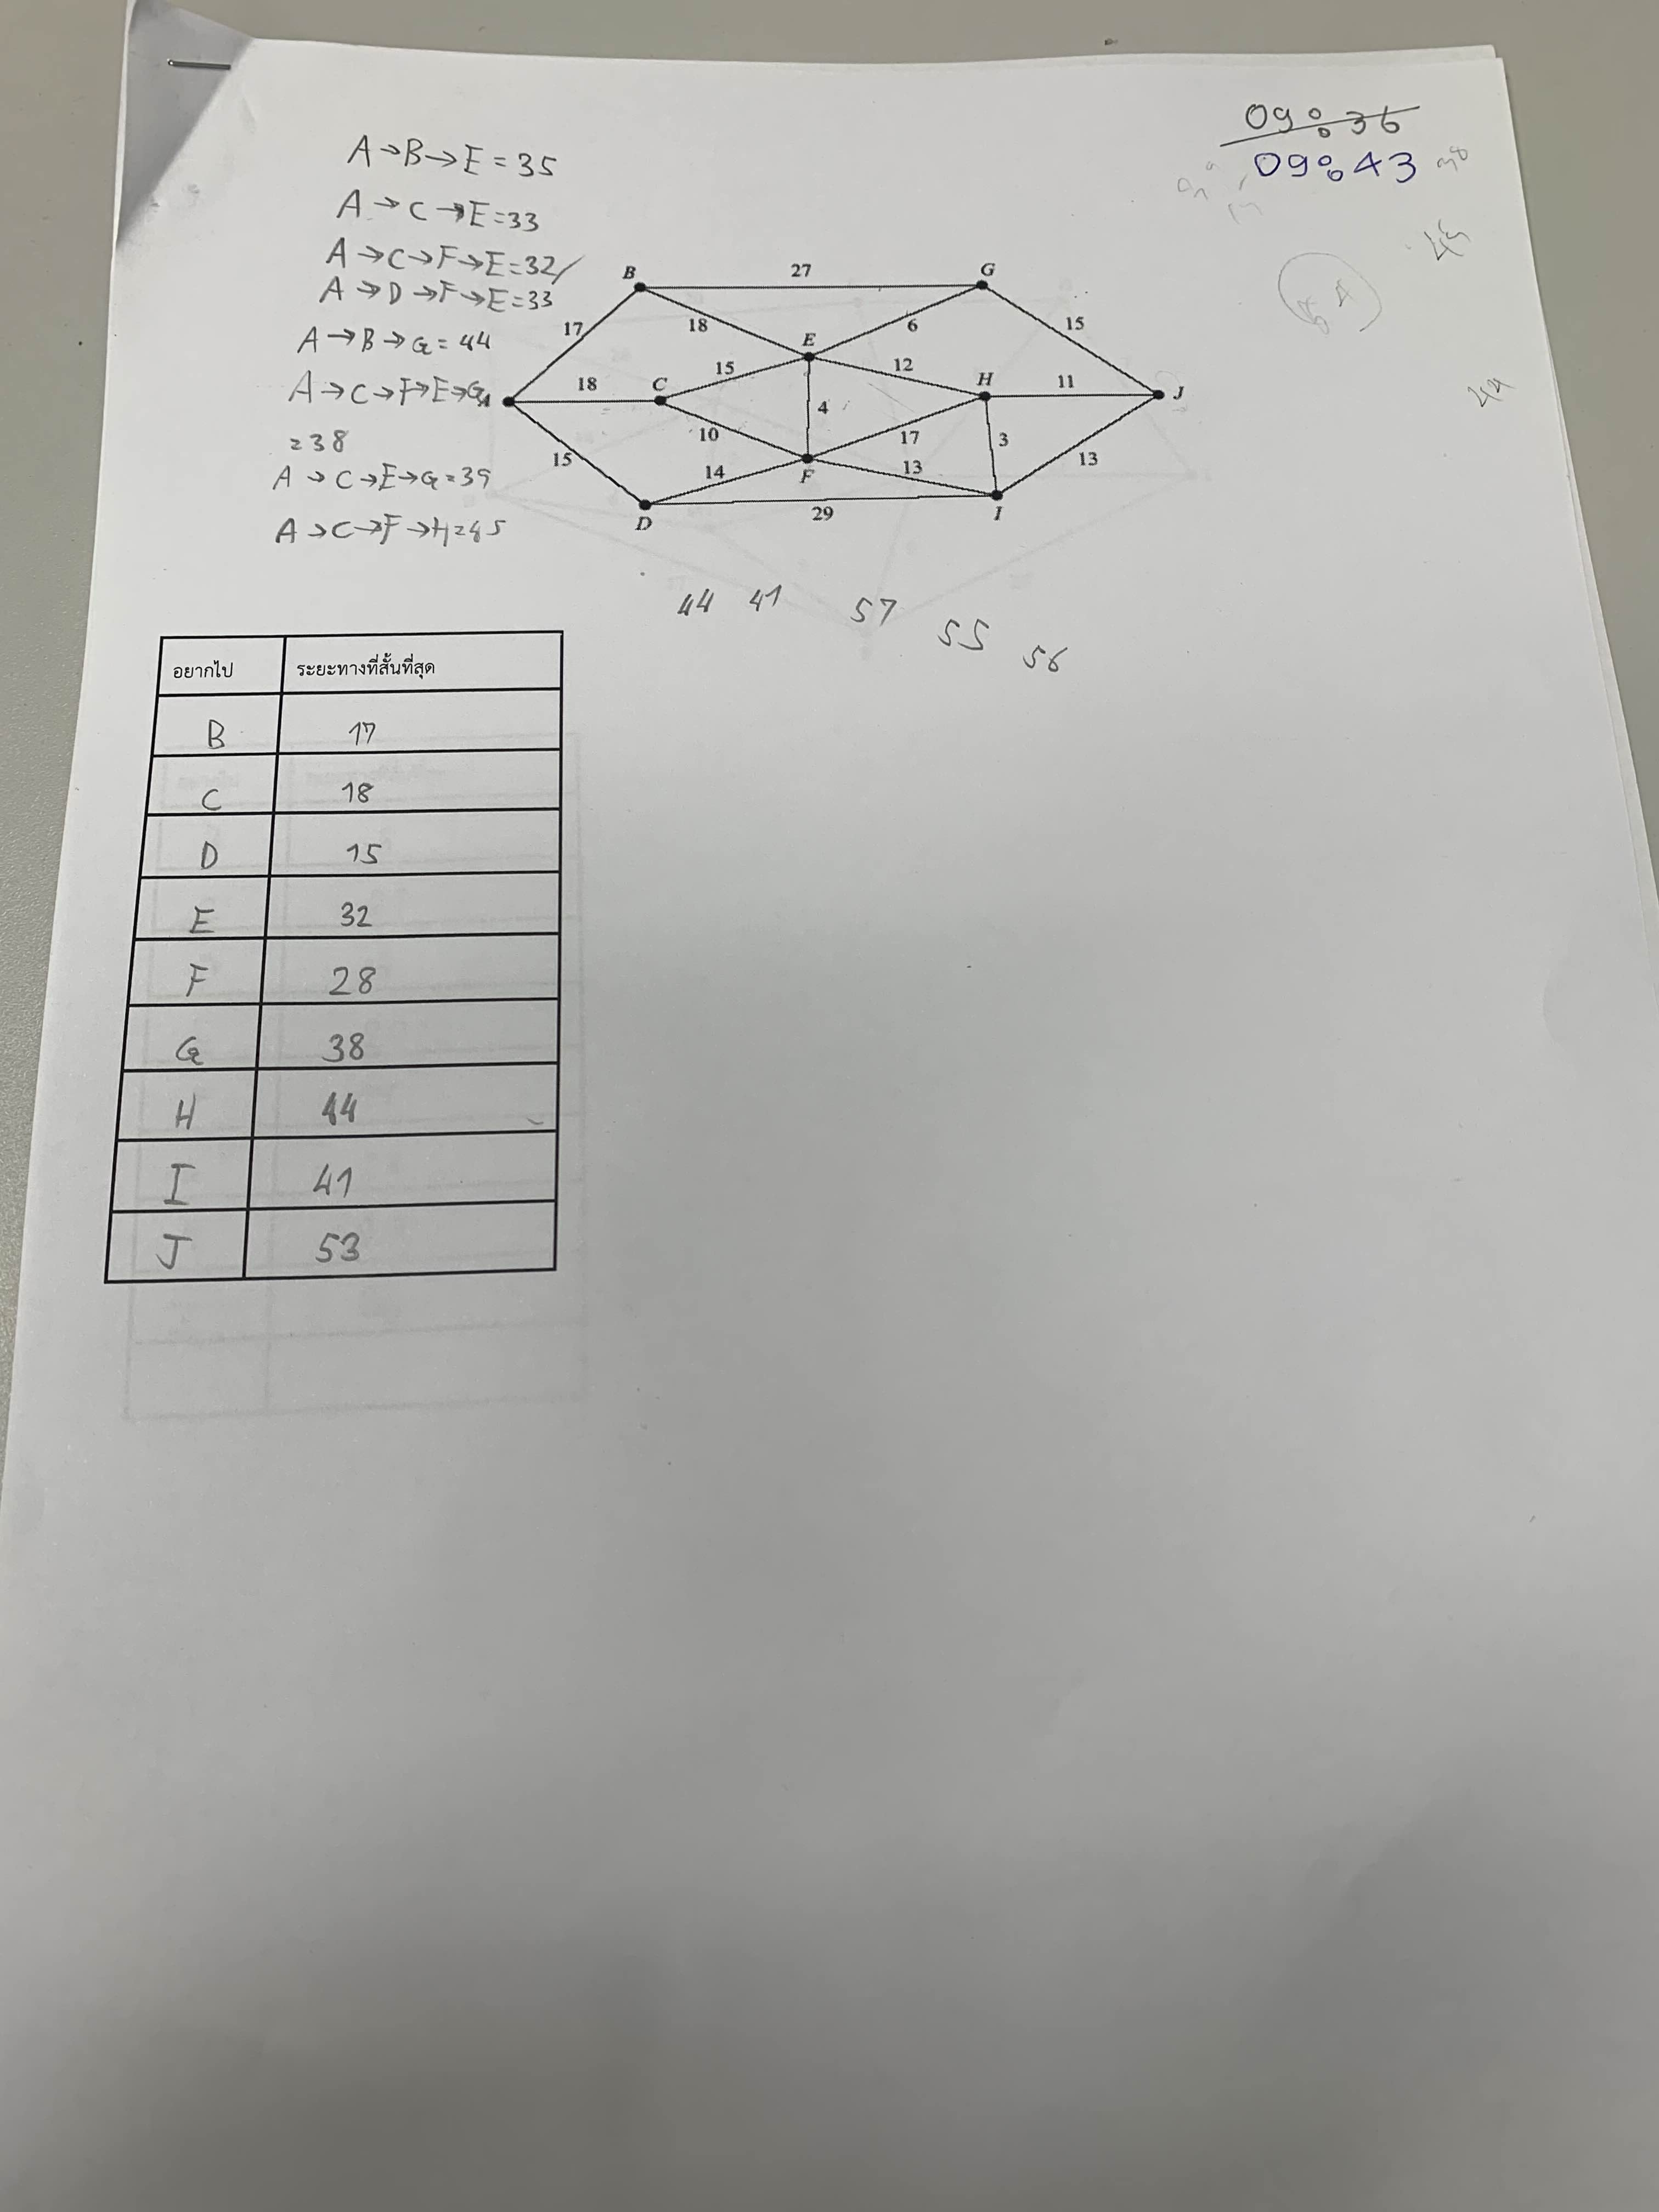 09:36
09:43
A→B→E=35
A→C→E=33
A→C→F→E=32/
A→D→F→E=33
A→B→G=44
A→C→F→E→G
=38
A→C→E→G=39
A→C→F→H=45
B 27 G
17 18 6 15
E
15 12
18 C H 11 J
A 4
10 17 3
15 14 F 13 13
D 29 I
44 41 57 55 56
44
อยากไป ระยะทางที่สั้นที่สุด
B 17
C 18
D 15
E 32
F 28
G 38
H 44
I 41
J 53